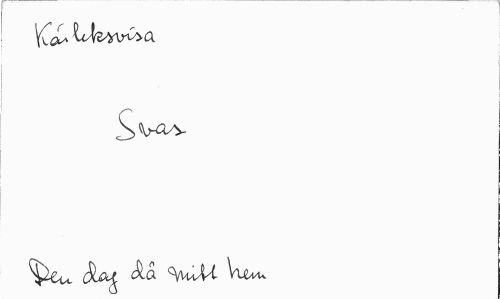 Kärleksvisa
Svar
Den dag då mitt hem